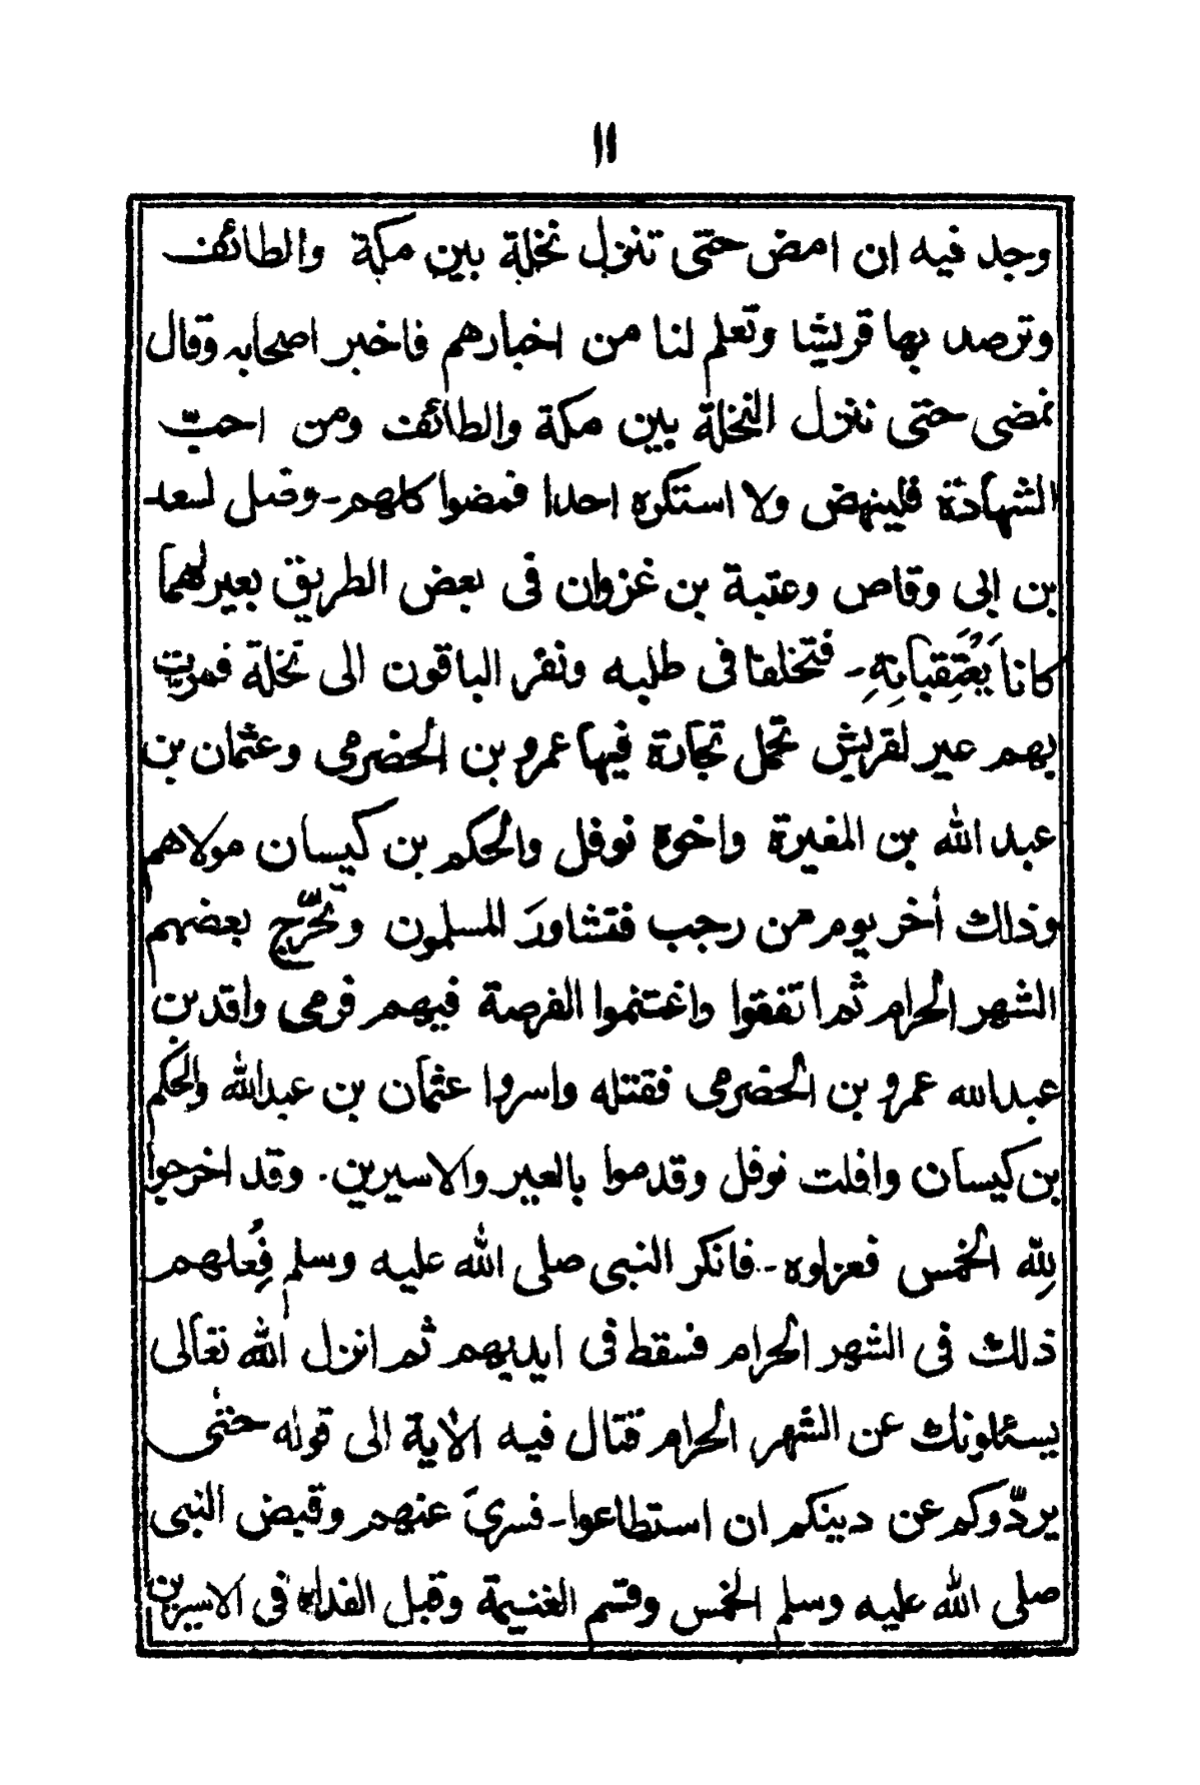 ١١
وجد فيه ان امض حتى تنزل نخلة بين مكة والطائف
وترصد بها قريشا وتعلم لنا من اخبارهم فاخبر اصحابه وقال
نمضى حتى ننزل النخلة بين مكة والطائف ومن احبّ
الشهادة فلينهض ولا استكره احدا فمضوا كلهم - وضل لسعد
بن ابى وقاص وعتبة بن غزوان فى بعض الطريق بعير لهما
كانا يَعْتَقِبانِهِ - فتخلفا فى طلبه ونفر الباقون الى نخلة فمرت
بهم عير لقريش تحمل تجارة فيها عمرو بن الحضرمى وعثمان بن
عبد الله بن المغيرة واخوة نوفل والحكم بن كيسان مولاهم
وذلك أخر يوم من رجب فتشاورَ المسلمون وتحرّج بعضهم
الشهر الحرام ثم اتفقوا واغتنموا الفرصة فيهم فرمى واقد بن
عبدالله عمرو بن الحضرمى فقتله واسروا عثمان بن عبدالله والحكم
بن كيسان وافلت نوفل وقدموا بالعير والاسيرين . وقد اخرجوا
لِلّه الخمس فعزلوه - فانكر النبى صلى الله عليه وسلم فِعُلهم
ذلك فى الشهر الحرام فسقط فى ايديهم ثم انزل الله تعالى
يسئلونك عن الشهر الحرام قتال فيه الأية الى قوله حتى
يردّوكم عن دينكم ان استطاعوا - فسريَ عنهم وقبض النبى
صلى الله عليه وسلم الخمس وقسم الغنيمة وقبل الفداء فى الاسيرين